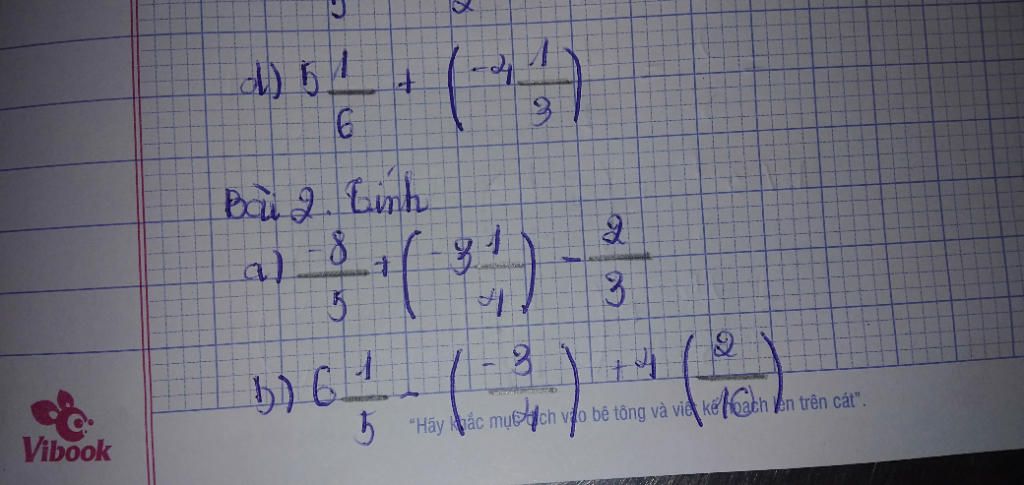 d) 5 1/6 + (-4 1/3)
Bài 2. Tính
a) -8/5 + (-3 1/4) - 2/3
b) 6 1/5 - (-3/4) + 4 (2/16)
"Hãy khắc mục đích vào bê tông và viết kế hoạch lên trên cát".
Vibook